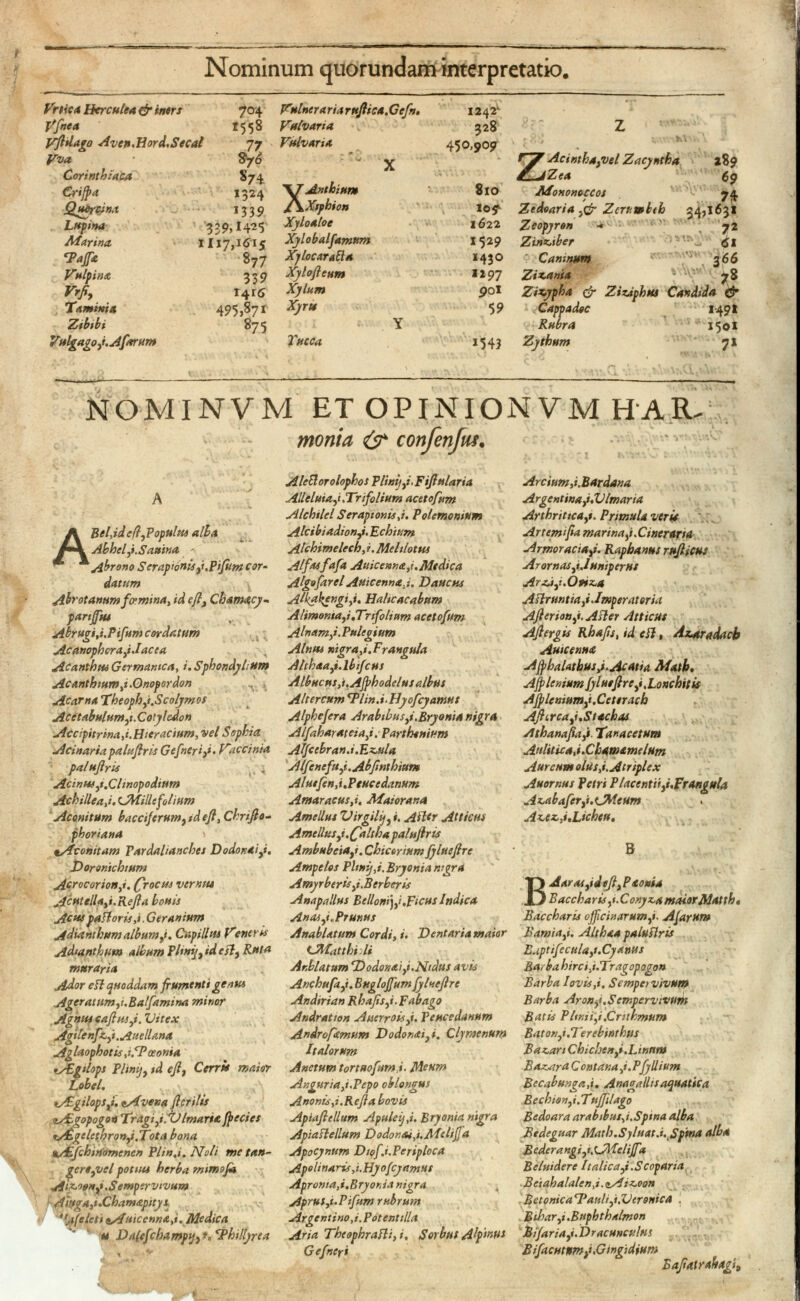 Nominum quorundam interpretatio.
Vrtica Herculea & iners 704
Vsnea 1558
Vstilago Aven. Hord. Secal 77
Vva 876
Corinthiaca 874
Crispa 1324
Quercina 1339
Lupina 339,1425
Marina 1117,1615
Passæ 877
Vulpina 339
Vrsi, 1416
Taminia 495,871
Zibibi 875
Vulgago,i. Asarum
Vulneraria rustica. Gesn. 1242
Vulvaria 328
Vulvaria 450,909
X
XAnthium 810
Xiphion 105
Xyloaloe 1622
Xylobalsamum 1529
Xylocaracta 1430
Xylosteum 1297
Xylum 901
Xyru 59
Y
Yucca 1543
Z
ZAcintha, vel Zacyntha 289
Zea 69
Mononoccos 74
Zedoaria, & Zerumbeth 34,1631
Zeopyron 72
Zinziber 61
Caninum 366
Zizania 78
Zizypha & Ziziphus Candida &
Cappadoc 1491
Rubra 1501
Zythum 71
NOMINVM ET OPINIONVM HAR-
monia & consensus.
A
ABel, id est, Populus alba
Abhel,i. Sauina
Abrono Serapionis,i. Pisum cor-
datum
Abrotanum fœmina, id est, Chamæcy-
parissus
Abrugi,i. Pisum cordatum
Acanophora,i. Iacea
Acanthus Germanica, i. Sphondylium
Acanthium,i. Onopordon
Acarna Theoph,i. Scolymos
Acetabulum,i. Cotyledon
Accipitrina,i. Hieracium, vel Sophia
Acinaria palustris Gesneri,i. Vaccinia
palustris
Acinus,i. Clinopodium
Achillea,i. Millefolium
Aconitum bacciferum, id est, Christo-
phoriana
Aconitam Pardalianches Dodonæi,i.
Doronichium
Acrocorion,i. Crocus vernus
Acutella,i. Resta bouis
Acus pastoris,i. Geranium
Adianthum album,i. Capillus Veneris
Adianthum album Plinij, id est, Ruta
muraria
Ador est quoddam frumenti genus
Ageratum,i. Balsamina minor
Agnus castus,i. Vitex
Agilensz,i. Auellana
Aglaophotis,i. Pœonia
Ægilops Plinij, id est, Cerris maior
Lobel.
Ægilops,i. Avena sterilis
Ægopogon Tragi,i. Vlmariæ species
Ægelethron,i. Tota bona
Æschinomenen Plin,i. Noli me tan-
gere, vel potius herba mimosa
Aizoon,i. Sempervivum
Aiuga,i. Chamæpitys
Auicennæ,i. Medica
Dalescampij, Phillyrea
Alectorolophos Plinij,i. Fistularia
Alleluia,i. Trifolium acetosum
Alchilel Serapionis,i. Polemonium
Alcibiadion,i. Echium
Alchimelech,i. Melilotus
Alfasfasa Auicennæ,i. Medica
Algosarel Auicennæ,i. Daucus
Alkakengi,i. Halicacabum
Alimonia,i. Trifolium acetosum
Alnam,i. Pulegium
Alnus nigra,i. Frangula
Althæa,i. Ibiscus
Albucus,i. Asphodelus albus
Altercum Plin.i. Hyoscyamus
Alphesera Arabibus,i. Bryonia nigra
Alsaharateia,i. Parthenium
Alscebran.i. Ezula
Alsenesu,i. Absinthium
Aluesen,i. Peucedanum
Amaracus,i. Maiorana
Amellus Virgilij, i. Aster Atticus
Amellus,i. Caltha palustris
Ambubeia,i. Chicorium sylvestre
Ampelos Plinij,i. Bryonia nigra
Amyrberis,i. Berberis
Anapallus Bellonij,i. Ficus Indica
Anas,i. Prunus
Anablatum Cordi, i. Dentaria maior
Matthioli
Anblatum Dodonæi,i. Nidus avis
Anchusa,i. Buglossum sylvestre
Andirian Rhasis,i. Fabago
Andration Auerrois,i. Peucedanum
Androsæmum Dodonæi, i. Clymenum
Italorum
Anetum tortuosum i. Meum
Anguria,i. Pepo oblongus
Anonis,i. Resta bovis
Apiastellum Apuleij, i. Bryonia nigra
Apiastellum Dodonæi,i. Melissa
Apocynum Diosc.i. Periploca
Apolinaris,i. Hyoscyamus
Apronia,i. Bryonia nigra
Aprus,i. Pisum rubrum
Argentino,i. Potentilla
Aria Theophrasti, i. Sorbus Alpinus
Gesneri
Arcium,i. Bardana
Argentina,i. Vlmaria
Arthritica,i. Primula veris
Artemisia marina,i. Cineraria
Armoracia,i. Raphanus rusticus
Arornas,i. Iuniperus
Arz,i. Oriza
Astruntia,i. Imperatoria
Asterion,i. Aster Atticus
Astergis Rhasis, id est, Azaradach
Auicennæ
Asphalathus,i. Acatia Math.
Asplenium sylvestre,i. Lonchitis
Asplenium,i. Ceterach
Astirca,i. Stæchas
Athanasia,i. Tanacetum
Aulitica,i. Chamæmelum
Aureum olus,i. Atriplex
Auornus Petri Placentij,i. Frangula
Azabaser,i. Meum
Azez,i. Licheu.
B
BAaras, id est, Pæonia
Baccharis,i. Conyza maior Matth.
Baccharis officinarum,i. Asarum
Bamia,i. Althæa palustris
Baptisecula,i. Cyanus
Barba hirci,i. Tragopogon
Barba Iovis,i. Sempervivum
Barba Aron,i. Sempervivum
Batis Plinii,i. Crithmum
Baton,i. Terebinthus
Bazari Chichen,i. Linum
Bazara Contana,i. Psyllium
Becabunga,i. Anagallis aquatica
Bechion,i. Tussilago
Bedoara arabibus,i. Spina alba
Bedeguar Math. Syluat.i. Spina alba
Bederangi,i. Melissa
Beluidere Italica,i. Scoparia
Beiahalalen,i. Aizoon
Betonica Pauli,i. Veronica
Bihar,i. Buphthalmon
Bisaria,i. Dracunculus
Bisacutum,i. Gingidium
Basiatrahagi,